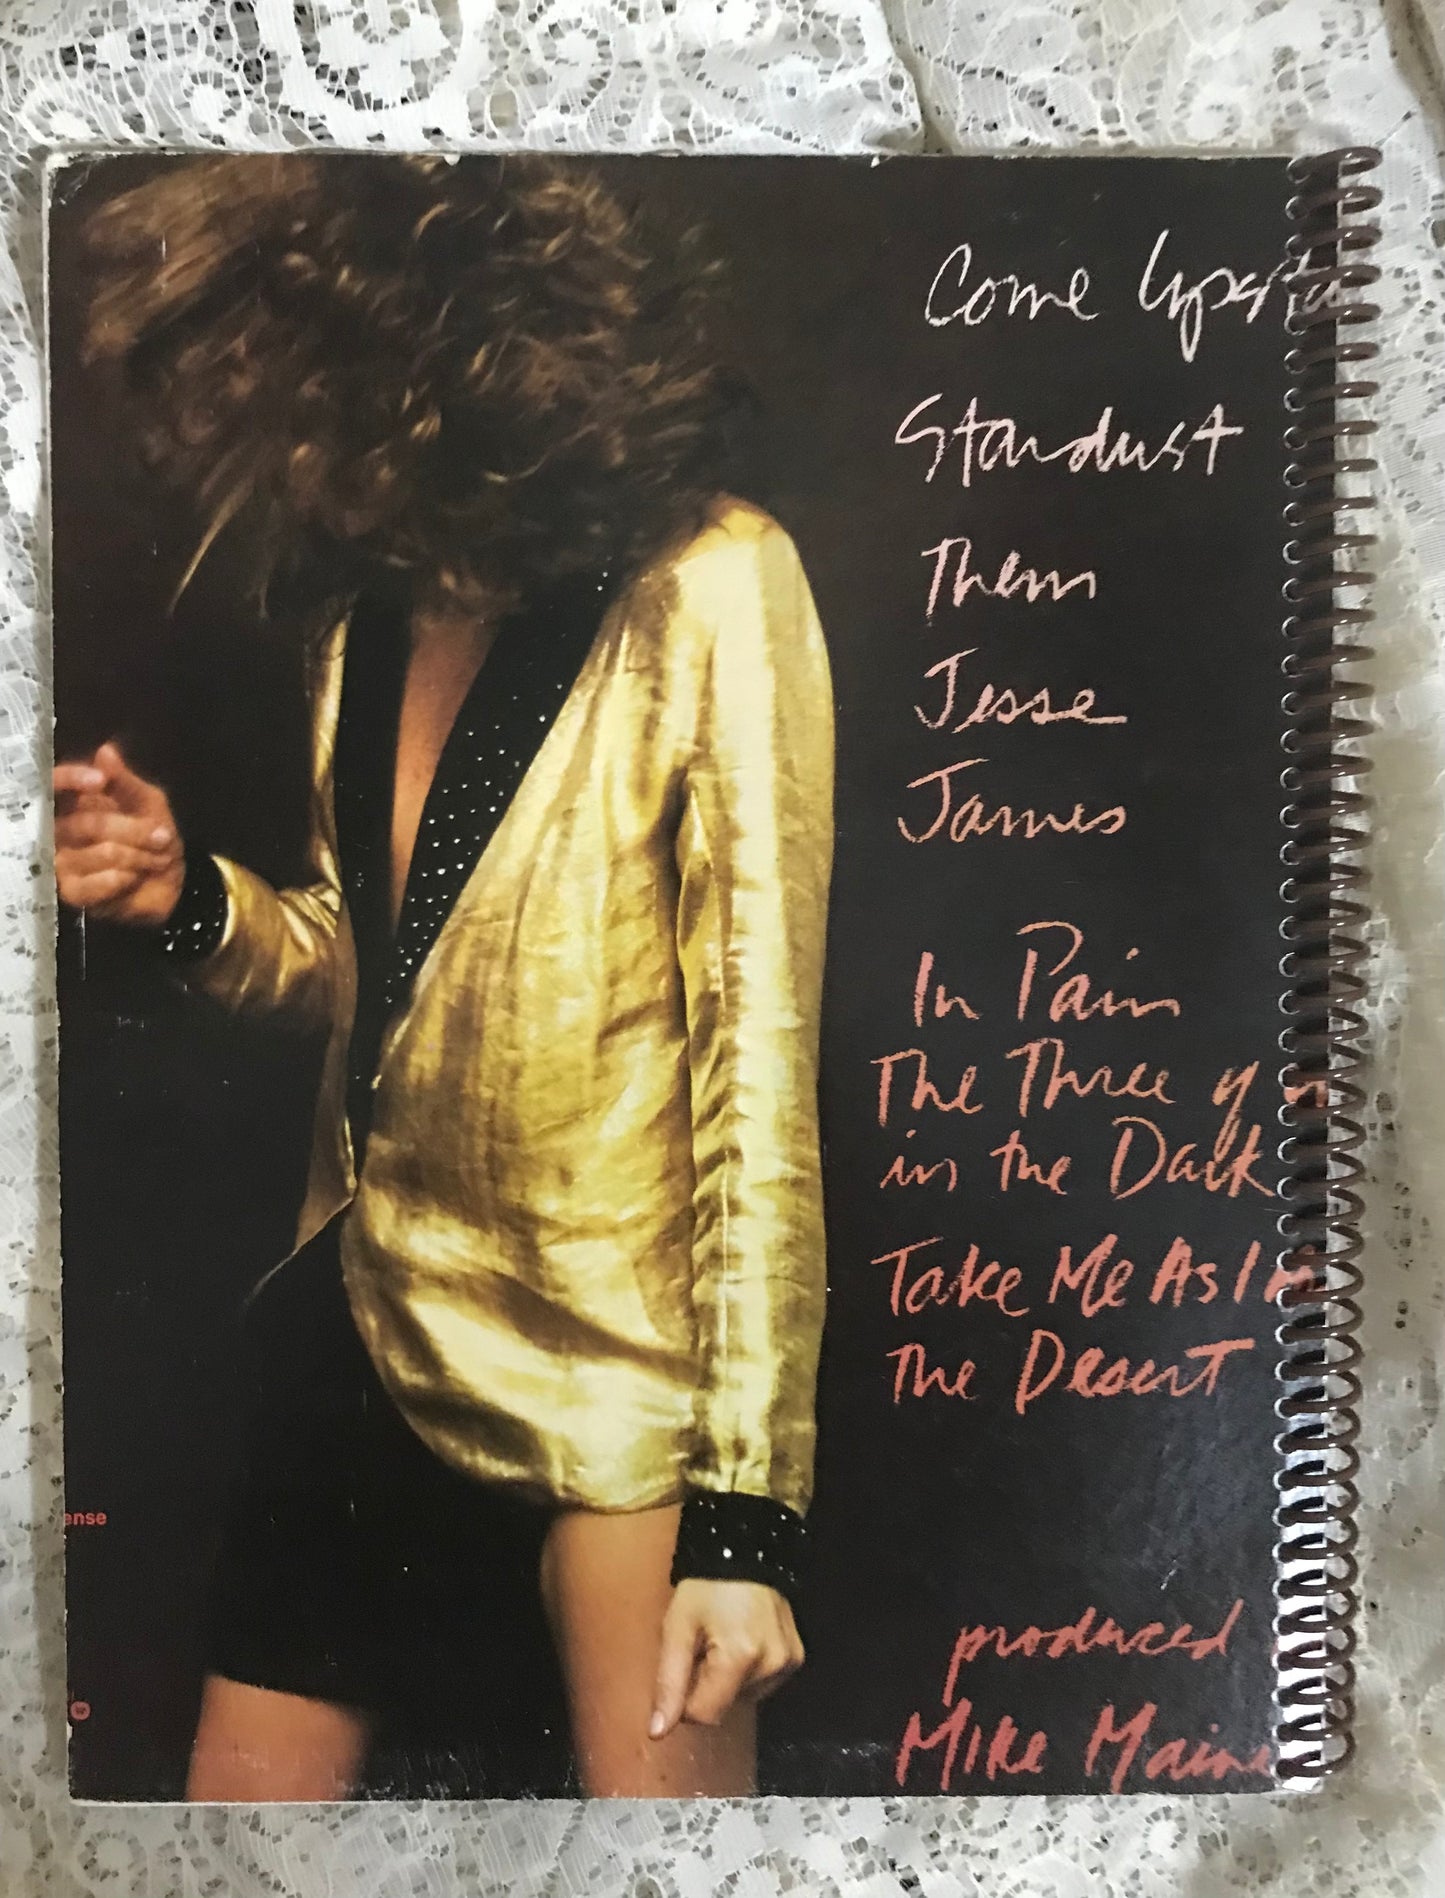 Come Upsta
Stardust
Them
Jesse
James
In Pain
The Three of
in the Dark
Take Me As I
The Desert
ense
produced
Mike Maine